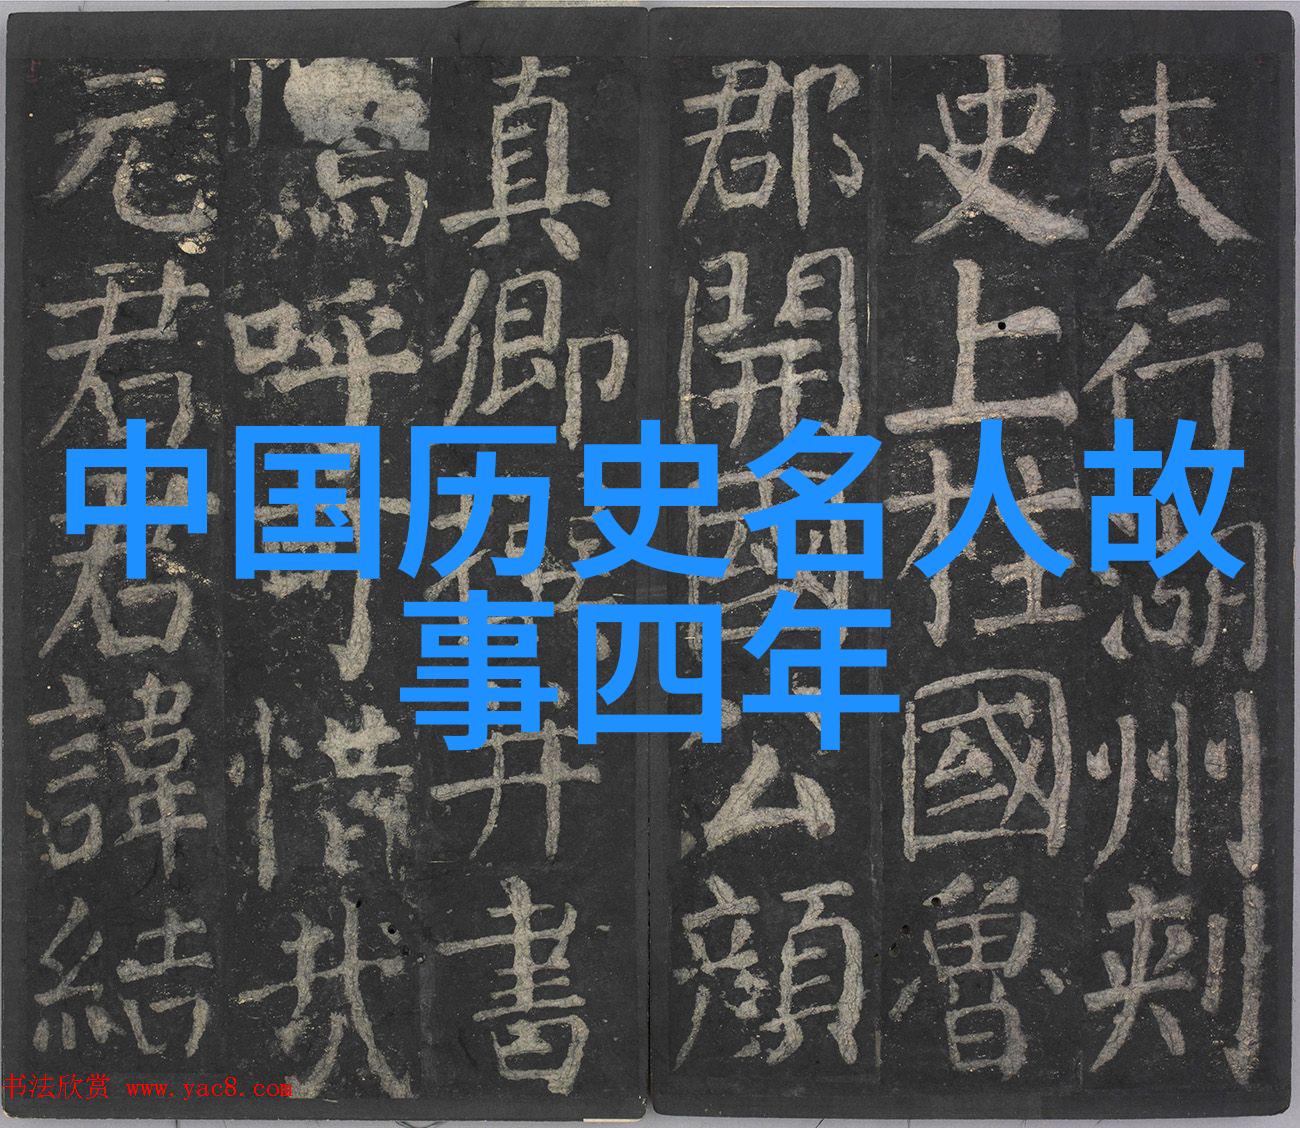 中国历史名人故
事四年
夫行湖州刺
史上柱國魯
郡開國公顏
真卿并書
嗚呼可惜哉
元君君諱結
书法欣赏 www.yac8.com